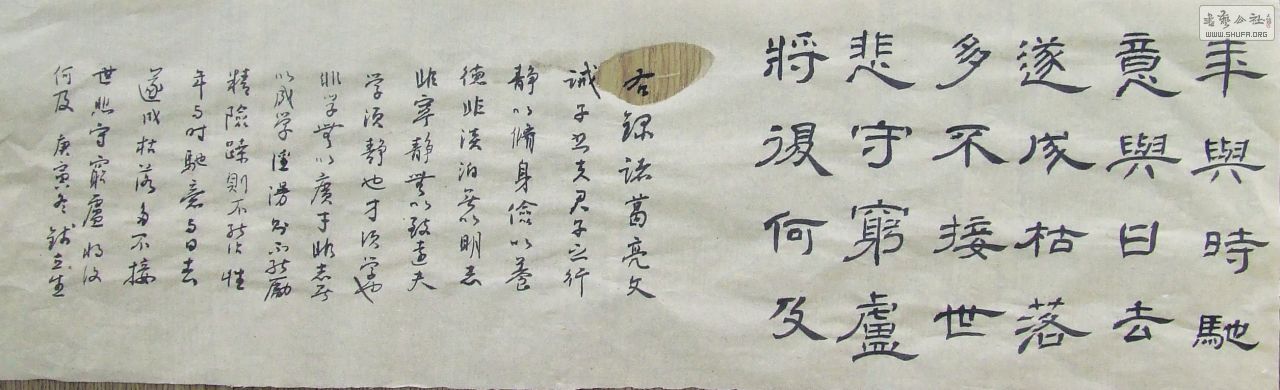 年與時馳
意與日去
遂成枯落
多不接世
悲守窮盧
將復何及
右錄諸葛亮文
誡子书夫君子之行
静以脩身儉以養
德非淡泊無以明志
非寧静無以致遠夫
学須静也才須学也
非学無以廣才非志無
以成学淫漫則不能勵
精險躁則不能治性
年与时馳意与日去
遂成枯落多不接
世悲守窮盧將復
何及 庚寅冬
書藝公社
WWW.SHUFA.ORG